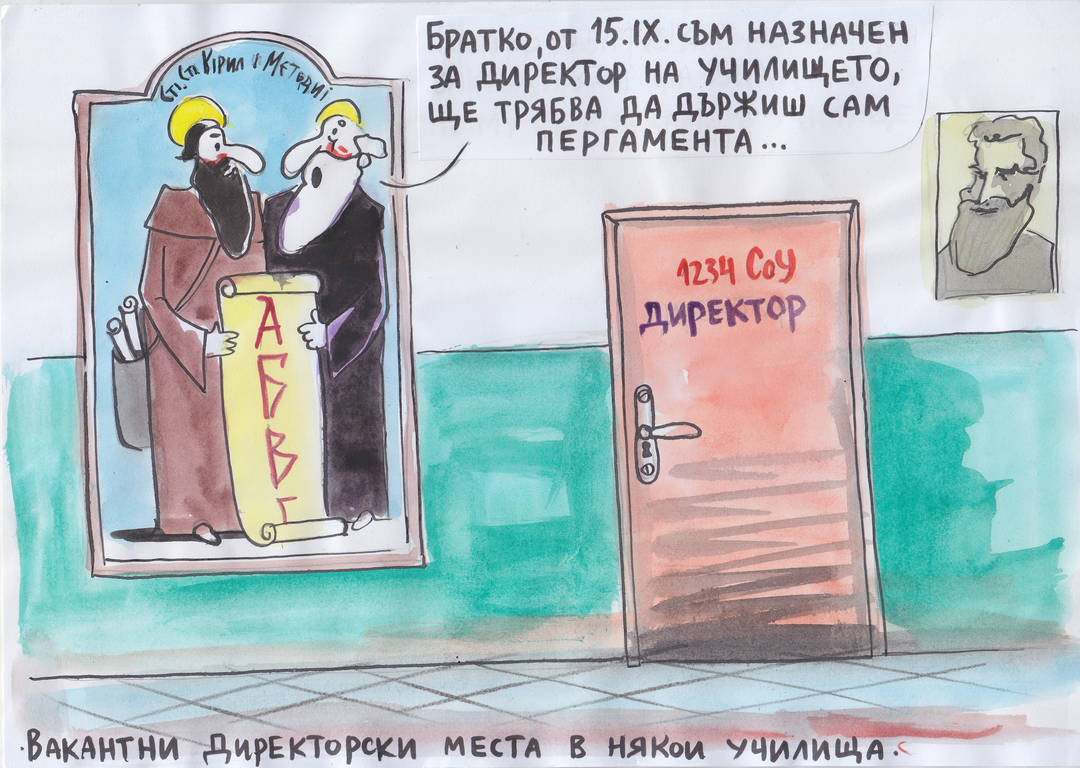 Братко, от 15.IX. съм назначен
за директор на училището,
ще трябва да държиш сам
пергамента...
Св. Св. Кірил і Методиі
А
Б
В
г
1234 СоУ
Директор
Вакантни директорски места в някои училища.